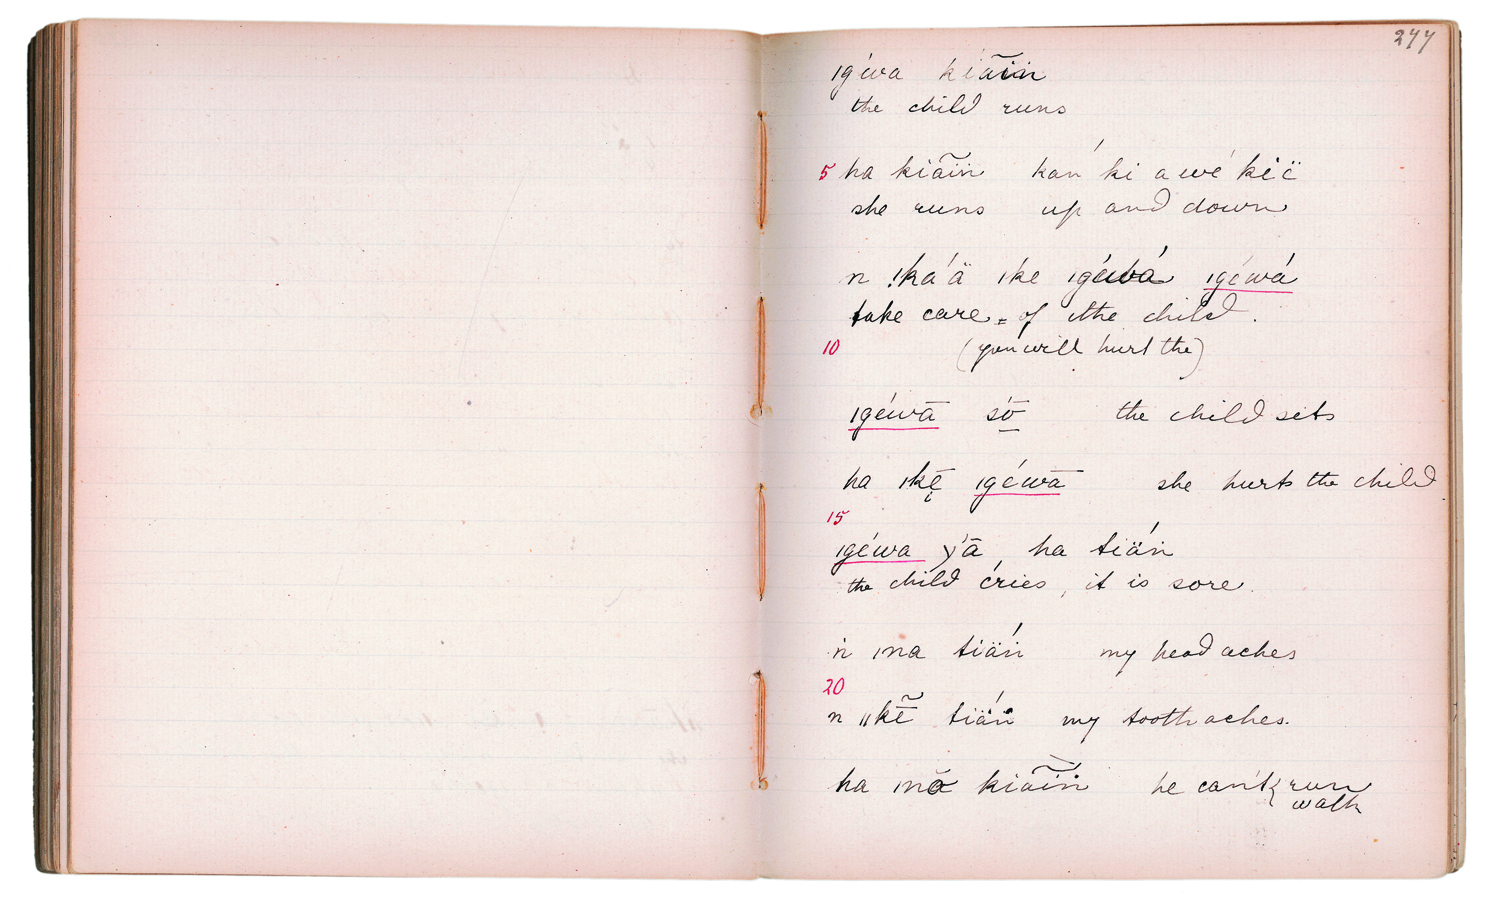 277
ıgéwa kíãin
the child runs
5 ha kiãin kań ki a wé kië
she runs up and down
n !ká'ä ıke ıgéwá ıgéwá
take care = of the child.
10 (you will hurt the)
ıgéwā sō the child sits
ha ıkē ıgéwā she hurts the child
15
ıgéwa y'ā ha tiäń
the child cries, it is sore.
ṅ ına tiäń my head aches
20
n ııkē̃ tiäń my tooth aches.
ha ınā kiãin he can't { run
walk